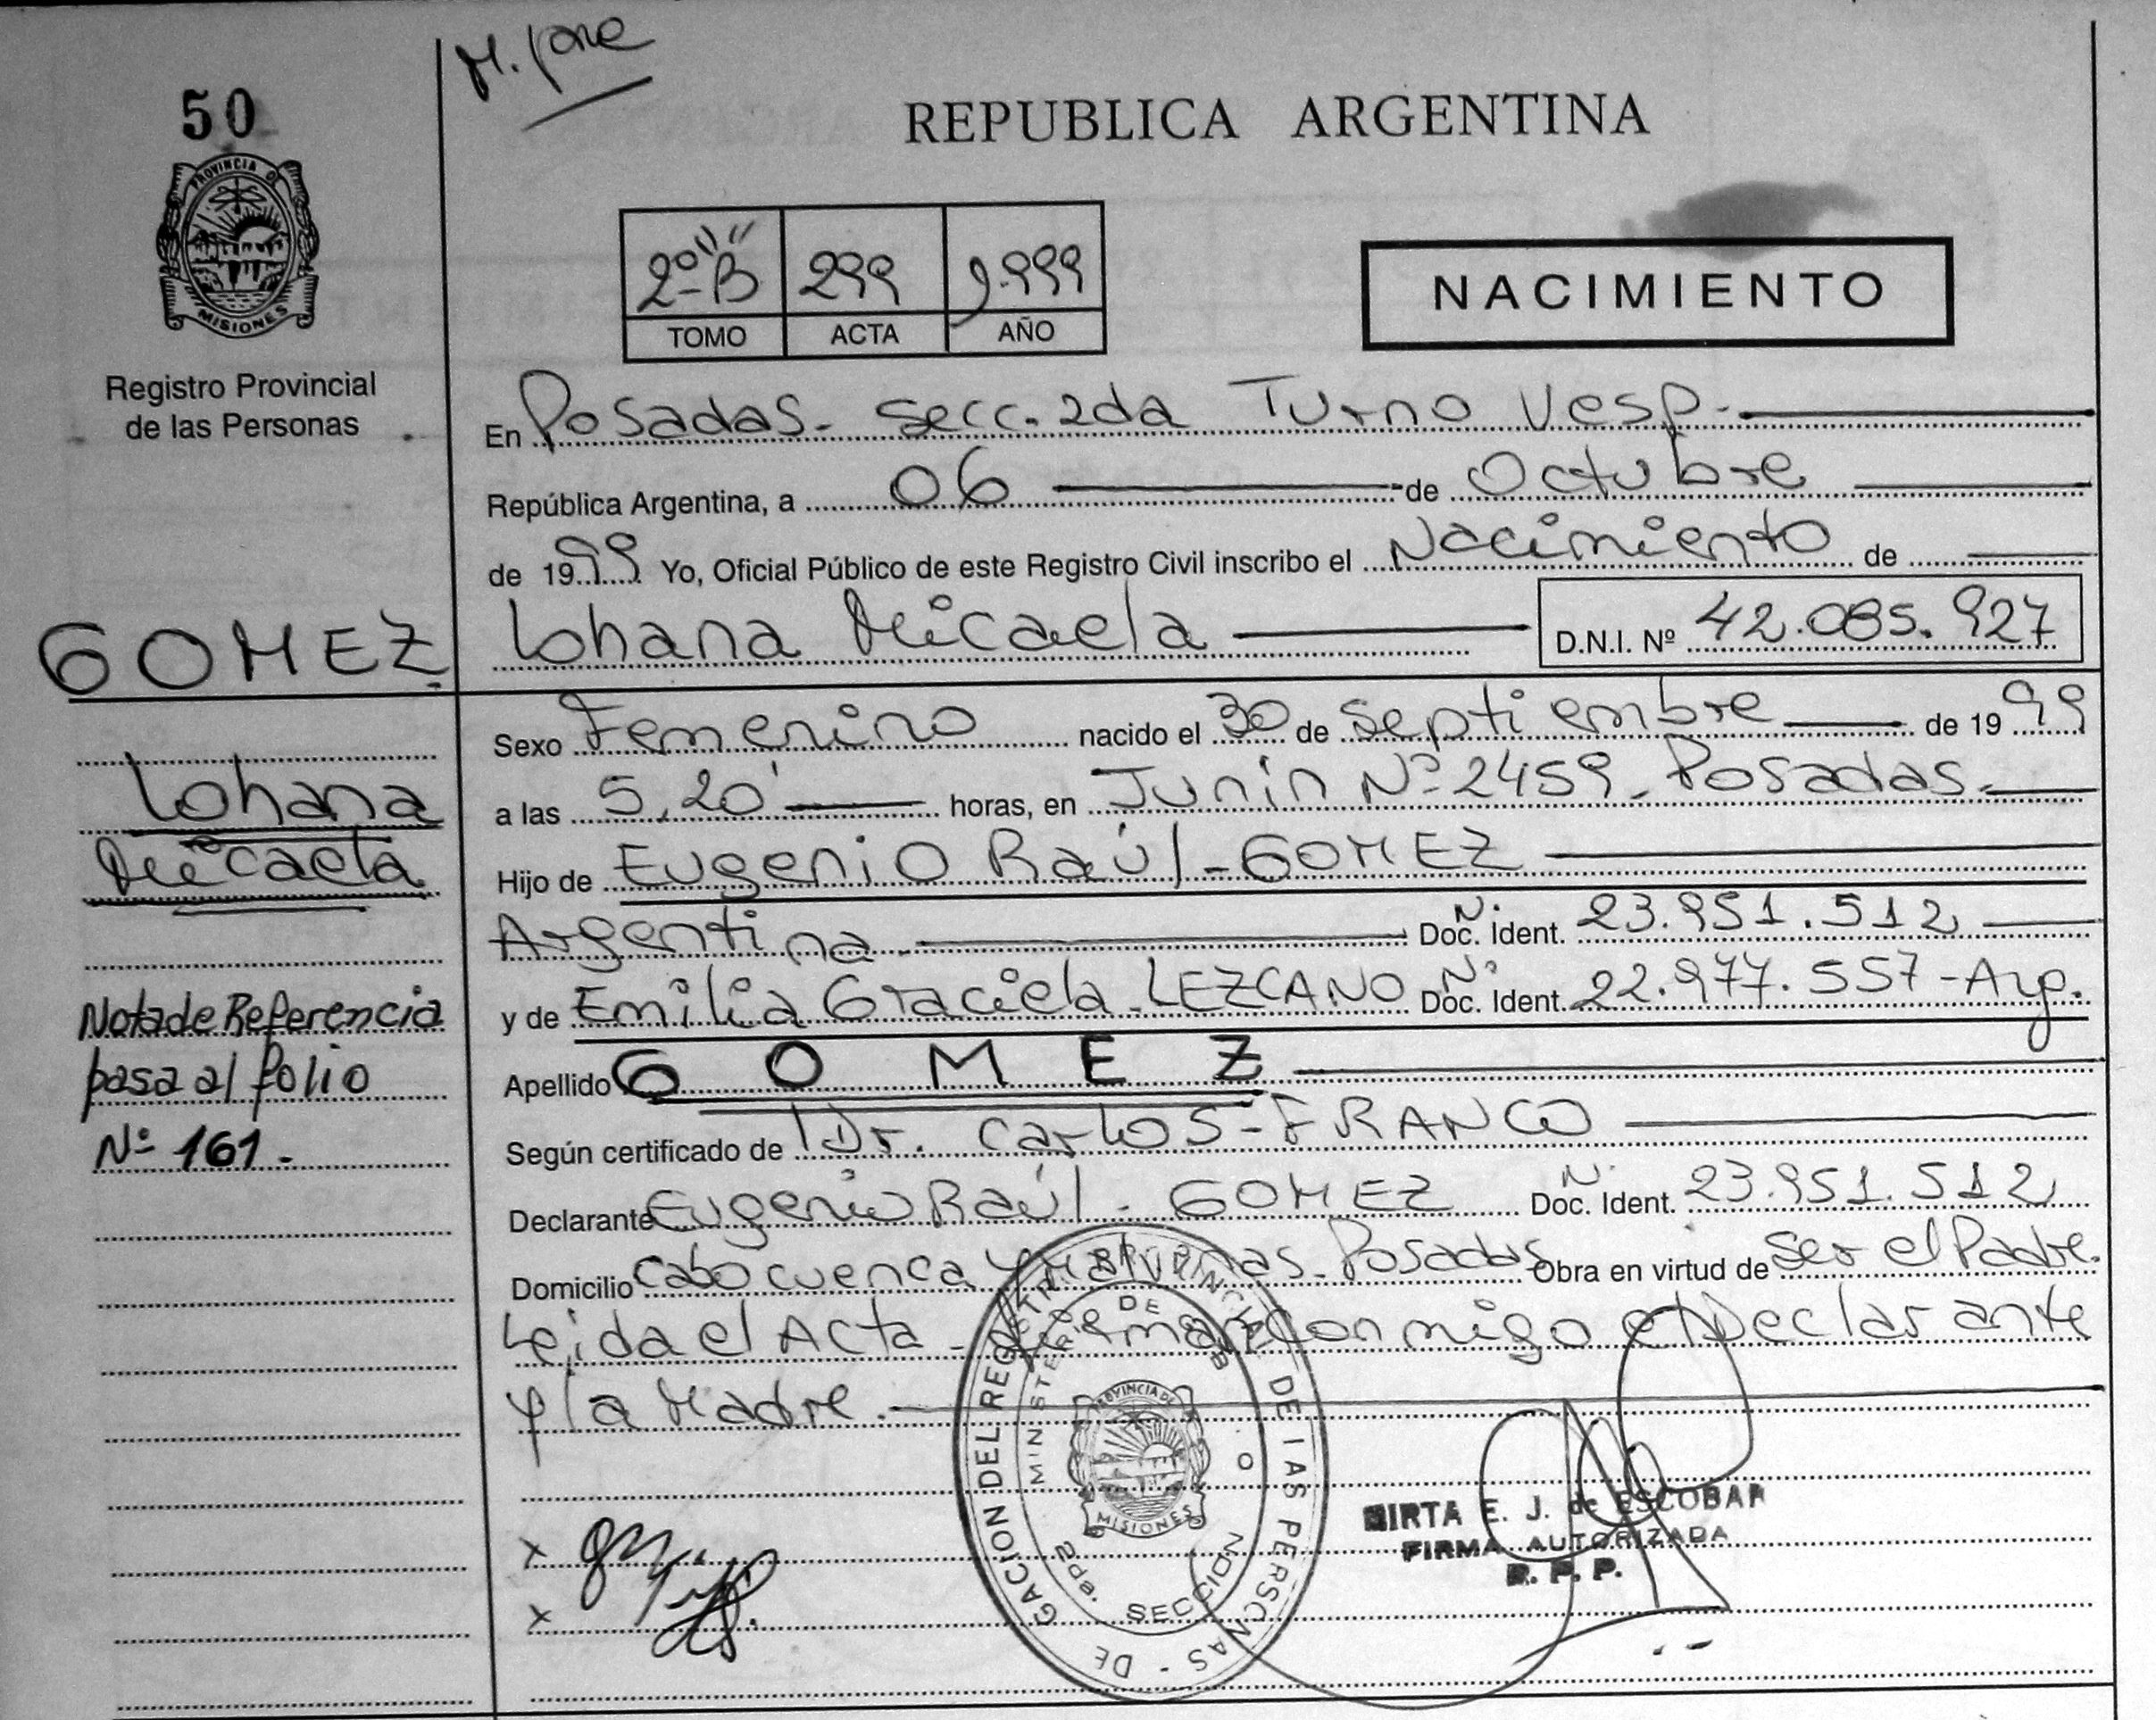 50
PROVINCIA DE
MISIONES
Registro Provincial
de las Personas
REPUBLICA ARGENTINA
2º "B" 299 1.999
TOMO ACTA AÑO
NACIMIENTO
En Posadas - Secc. 2da Turno Vesp.
República Argentina, a 06 de Octubre
de 1999 Yo, Oficial Público de este Registro Civil inscribo el Nacimiento de
GOMEZ Lohana Micaela D.N.I. Nº 42.085.927
Sexo Femenino nacido el 30 de Septiembre de 1999
a las 5,20' horas, en Junín Nº 2459 - Posadas.
Hijo de Eugenio Raúl - GOMEZ
Argentina Nº Doc. Ident. 23.951.512
y de Emilia Graciela - LEZCANO Nº Doc. Ident. 22.977.557 - Arg.
Apellido GOMEZ
Según certificado de Dr. Carlos - FRANCO
Declarante Eugenio Raúl - GOMEZ Nº Doc. Ident. 23.951.512
Domicilio Cabo cuenca y Malvinas - Posadas Obra en virtud de ser el Padre.
Leida el Acta - firman conmigo el Declarante
y la Madre.
Lohana
Micaela
Nota de Referencia
pasa al folio
Nº 161.-
PROVINCIA DE
MISIONES
2da. SECCION
MIRTA E. J. de ESCOBAR
FIRMA AUTORIZADA
R. P. P.